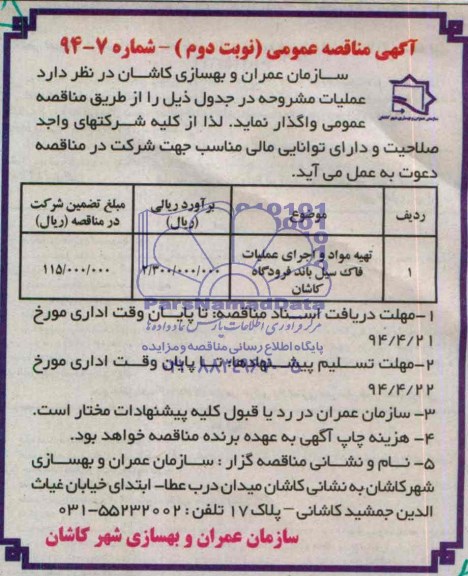 آگهی مناقصه عمومی (نوبت دوم) - شماره ۷-۹۴
سازمان عمران و بهسازی کاشان در نظر دارد
عملیات مشروحه در جدول ذیل را از طریق مناقصه
عمومی واگذار نماید. لذا از کلیه شرکتهای واجد
صلاحیت و دارای توانایی مالی مناسب جهت شرکت در مناقصه
دعوت به عمل می آید.
ردیف موضوع برآورد ریالی (ریال) مبلغ تضمین شرکت در مناقصه (ریال)
۱ تهیه مواد و اجرای عملیات فاگ سیل باند فرودگاه کاشان ۲/۳۰۰/۰۰۰/۰۰۰ ۱۱۵/۰۰۰/۰۰۰
ParsNamadData
مرکز فرآوری اطلاعات پارس نماد داده ها
۱-مهلت دریافت اسناد مناقصه: تا پایان وقت اداری مورخ
۹۴/۴/۲۱
پایگاه اطلاع رسانی مناقصه و مزایده
۲-مهلت تسلیم پیشنهادها: تا پایان وقت اداری مورخ
۹۴/۴/۲۲
۳- سازمان عمران در رد یا قبول کلیه پیشنهادات مختار است.
۴- هزینه چاپ آگهی به عهده برنده مناقصه خواهد بود.
۵- نام و نشانی مناقصه گزار : سازمان عمران و بهسازی
شهرکاشان به نشانی کاشان میدان درب عطا- ابتدای خیابان غیاث
الدین جمشید کاشانی - پلاک ۱۷ تلفن : ۵۵۲۳۲۰۰۲-۰۳۱
سازمان عمران و بهسازی شهر کاشان